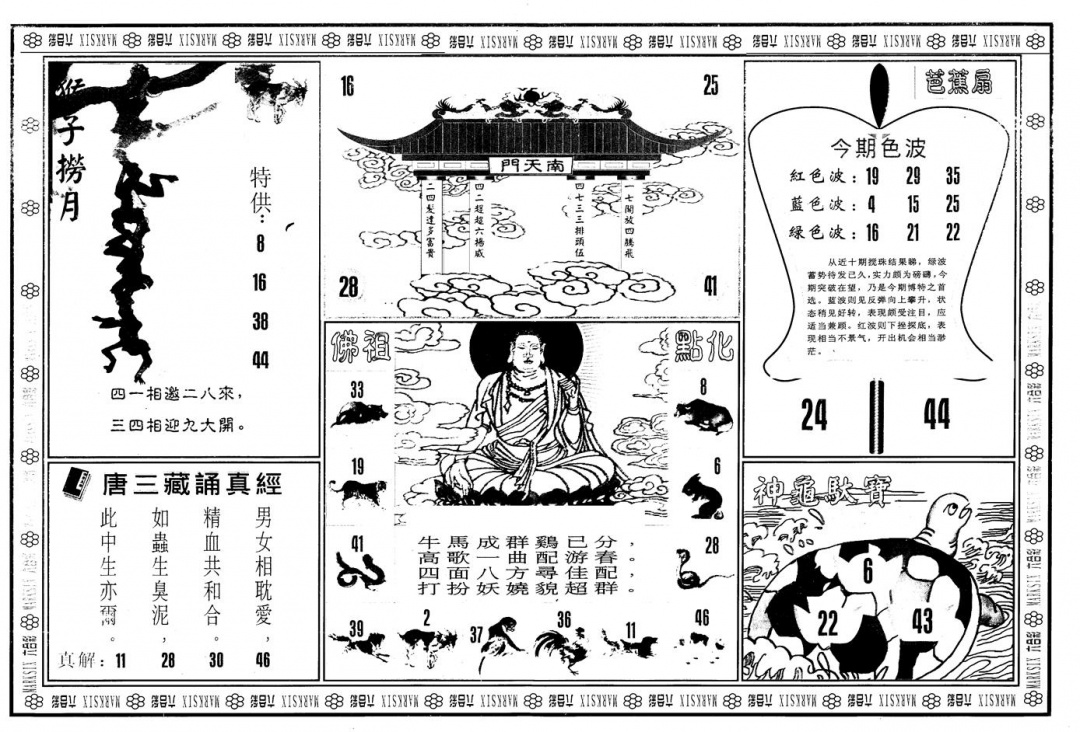 六合彩 MARKSIX
猴子撈月
特供：
8
16
38
44
四一相邀二八來，
三四相迎九大開。
16
25
南天門
四七三三排頭伍
四二超超六揚威
28
41
芭蕉扇
今期色波
紅色波：19 29 35
藍色波：4 15 25
绿色波：16 21 22
从近十期搅珠结果睇，绿波
蓄势待发已久，实力颇为磅礴，今
期突破在望，乃是今期博特之首
选。蓝波则见反弹向上攀升，状
态稍见好转，表现颇受注目，应
适当兼顾。红波则下挫探底，表
现相当不景气，开出机会相当渺
茫。
24
44
佛祖
點化
33
8
19
6
41
28
牛馬成群鷄已分，
高歌一曲配游春。
四面八方尋佳配，
打扮妖嬈貌超群。
39
2
37
36
11
46
唐三藏誦真經
男女相耽愛，
精血共和合。
如蟲生臭泥，
此中生亦爾。
真解：11 28 30 46
神龜馱寶
6
22
43